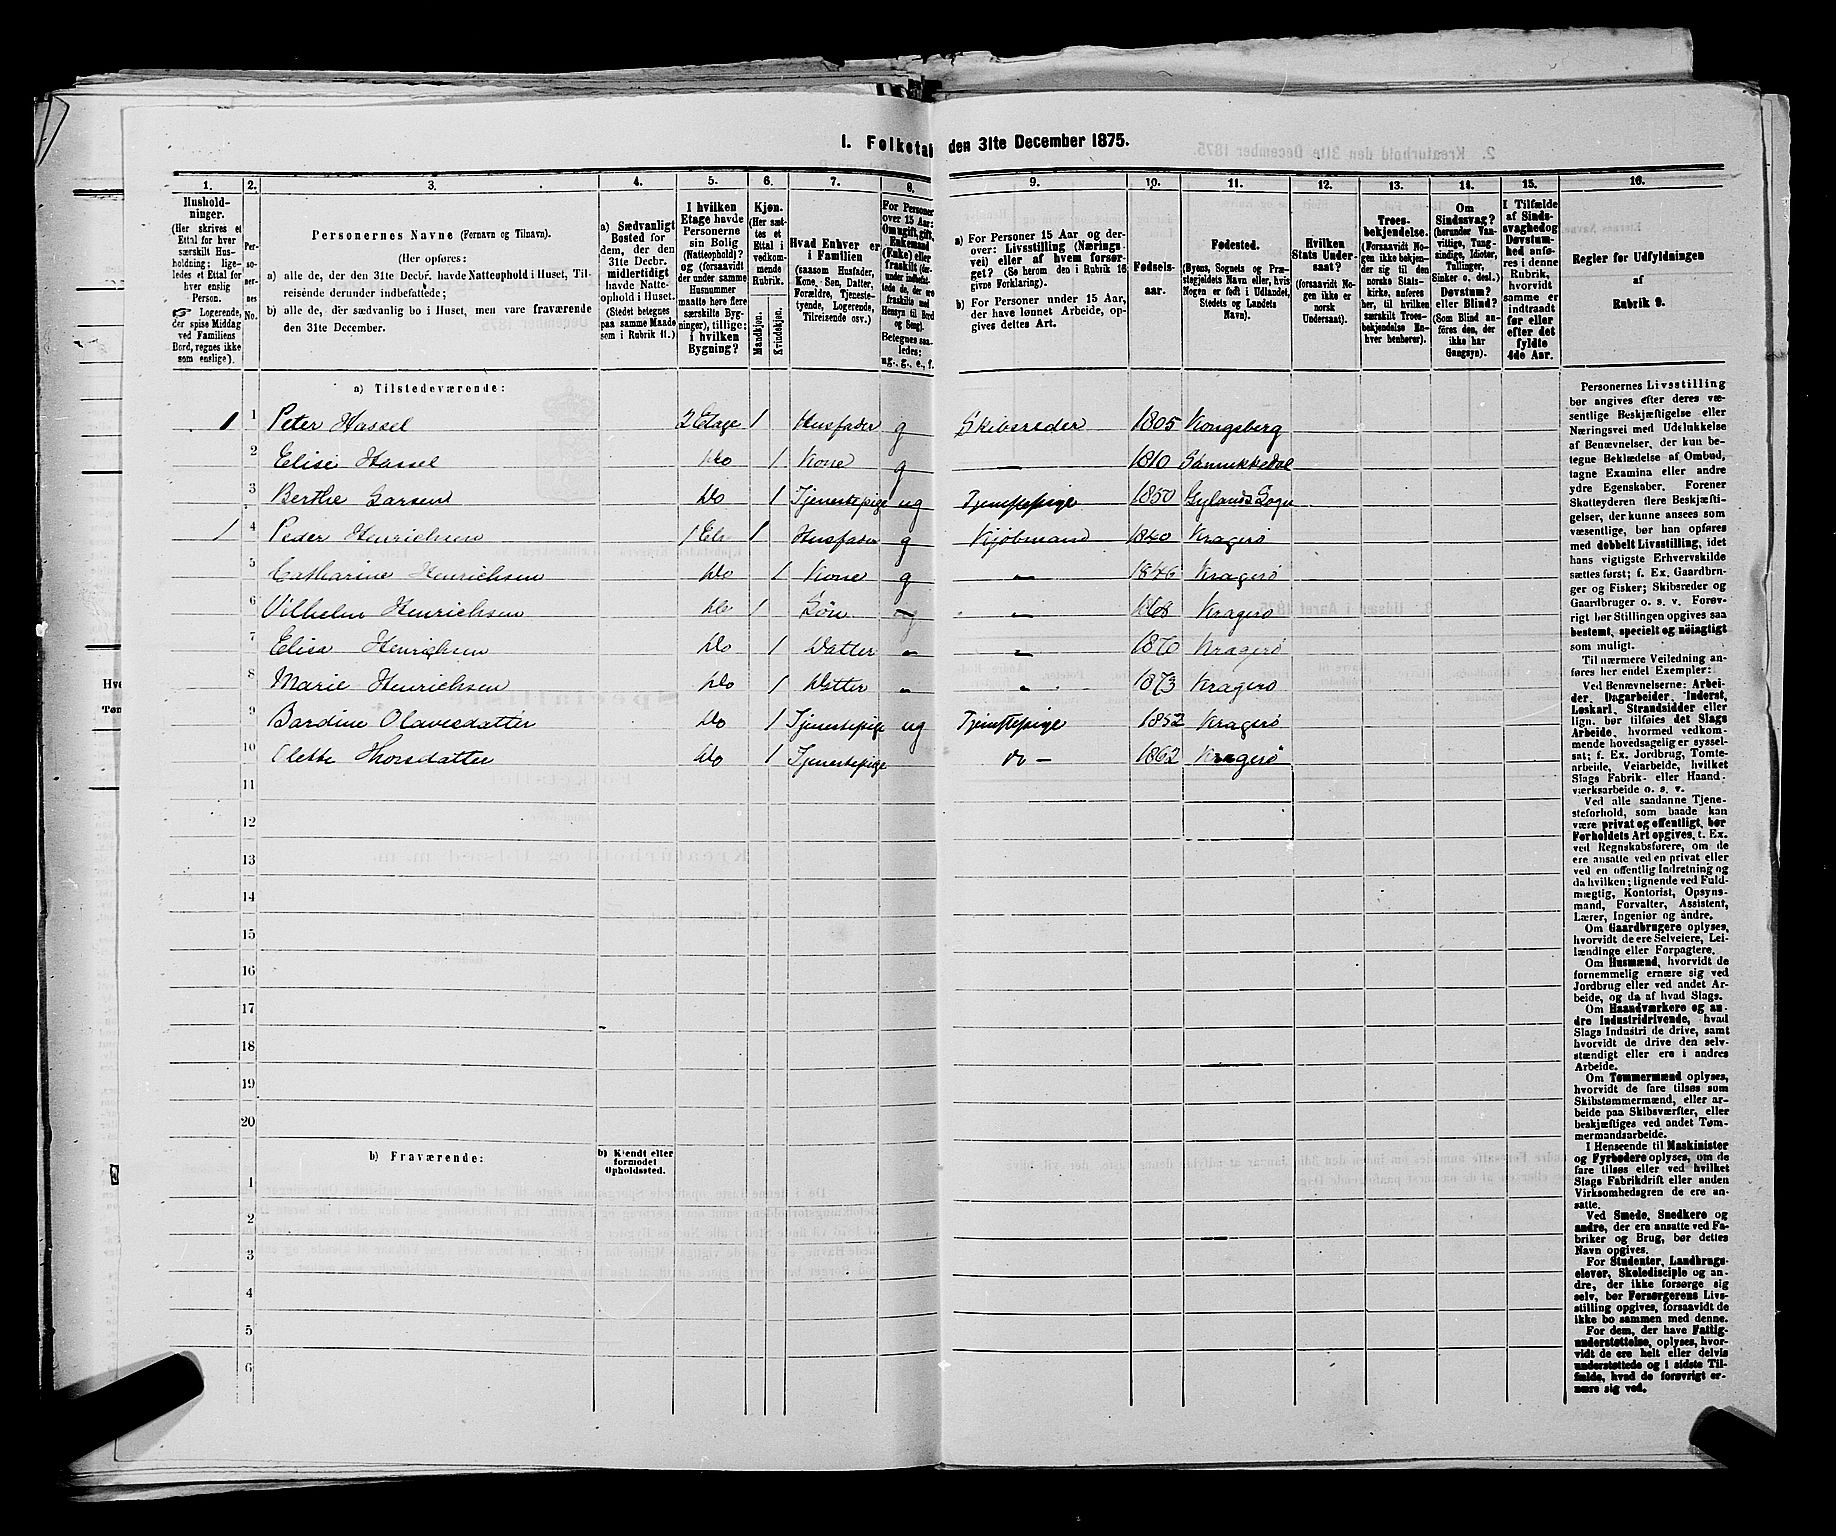 1. Folketal den 31te December 1875.
1. 2. 3. 4. 5. 6. 7. 8. 9. 10. 11. 12. 13. 14. 15. 16.
Hushold-
ninger.
(Her skrives et
Ettal for hver
særskilt Hus-
holdning; lige-
ledes et Ettal for
hver enslig
Person.
☞ Logerende,
der spise Middag
ved Familiens
Bord, regnes ikke
som enslige).
Per-
so-
ner-
nes
No.
Personernes Navne (Fornavn og Tilnavn).
(Her opføres:
a) alle de, der den 31te Decbr. havde Natteophold i Huset, Til-
reisende derunder indbefattede;
b) alle de, der sædvanlig bo i Huset, men vare fraværende
den 31te December.
a) Sædvanligt
Bosted for
dem, der den
31te Decbr.
midlertidigt
havde Natte-
ophold i Huset.
(Stedet betegnes
paa samme Maade
som i Rubrik 11.)
I hvilken
Etage havde
Personerne
sin Bolig
(Natteophold)?
og (forsaavidt
der under samme
Husnummer
maatte høre flere
særskilte Byg-
ninger), tillige:
i hvilken
Bygning?
Kjøn.
(Her sæt-
tes et
Ettal i
vedkom-
mende
Rubrik.
Mandkjøn.
Kvindekjøn.
Hvad Enhver er
i Familien
(saasom Husfader,
Kone, Søn, Datter,
Forældre, Tjeneste-
tyende, Logerende,
Tilreisende osv.)
For Personer
over 15 Aar:
Om ugift, gift,
Enkemand
(Enke) eller
fraskilt
Betegnes saa-
ledes:
ug., g., e., f.
a) For Personer 15 Aar og der-
over: Livsstilling (Nærings-
vei) eller af hvem forsør-
get? (Se herom den i Rubrik 16
givne Forklaring).
b) For Personer under 15 Aar,
der have lønnet Arbeide, op-
gives dettes Art.
Fødsels-
aar.
Fødested.
(Byens, Sognets og Præ-
stegjeldets Navn eller, hvis
Nogen er født i Udlandet,
Stedets og Landets
Navn).
Hvilken
Stats Under-
saat?
(forsaavidt No-
gen ikke er
norsk
Undersaat).
Troes-
bekjendelse.
(Forsaavidt No-
gen ikke bekjen-
der sig til den
norske Stats-
kirke, anføres
her, til hvilken
særskilt Troes-
bekjendelse En-
hver henhører).
Om
Sindssvag?
(herunder Van-
vittige, Tung-
sindige, Idioter,
Tullinger,
Sinker o. desl.)
Døvstum?
eller Blind?
(Som Blind an-
føres den, der
ikke har
Gangsyn).
I Tilfælde
af Sinds-
svaghed og
Døvstum-
hed anfø-
res i denne
Rubrik,
hvorvidt
samme er
indtraadt
før eller
efter det
fyldte
4de Aar.
Regler for Udfyldningen
af
Rubrik 9.
a) Tilstedeværende:
1 1 Peter Hassel 2 Etage 1 Husfader g Skibsreder 1805 Kongsberg
2 Elise Hassel Do 1 Kone g — 1810 Sannikkedal
3 Berthe Larsen Do 1 Tjenestepige ug Tjenstepige 1850 Gylands Sogn
1 4 Peder Henrichsen 1 Et 1 Husfader g Kjøbmand 1840 Kragerø
5 Catharine Henrichsen Do 1 Kone g — 1846 Kragerø
6 Vilhelm Henrichsen Do 1 Søn — — 1868 Kragerø
7 Elisa Henrichsen Do 1 Datter — — 1870 Kragerø
8 Marie Henrichsen Do 1 Datter — — 1873 Kragerø
9 Bardine Olavesdatter Do 1 Tjenestepige ug Tjenstepige 1852 Kragerø
10 Olette Thorsdatter Do 1 Tjenestepige do — 1862 Kragerø
11
12
13
14
15
16
17
18
19
20
b) Fraværende:
b) Kjendt eller
formodet
Opholdssted.
1
2
3
4
5
6
Personernes Livsstilling
bør angives efter deres væ-
sentlige Beskjæftigelse eller
Næringsvei med Udelukkelse
af Benævnelser, der kun be-
tegne Beklædelse af Ombud,
tagne Examina eller andre
ydre Egenskaber. Forener
Skatteyderen flere Beskjæfti-
gelser, der kunne ansees som
væsentlige, bør han opføres
med dobbelt Livsstilling, idet
hans vigtigste Erhvervskilde
sættes først; f. Ex. Gaardbru-
ger og Fisker; Skibsreder og
Gaardbruger o. s. v. Forøv-
rigt bør Stillingen opgives saa
bestemt, specielt og nøiagtigt
som muligt.
Til nærmere Veiledning an-
føres her endel Exempler:
Ved Benævnelserne: Arbei-
der, Dagarbeider, Inderst,
Løskarl, Strandsidder eller
lign. bør tilføies det Slags
Arbeide, hvormed vedkom-
mende hovedsagelig er syssel-
sat; f. Ex. Jordbrug, Tomte-
arbeide, Veiarbeide, hvilket
Slags Fabrik- eller Haand-
værksarbeide o. s. v.
Ved alle saadanne Tjene-
steforhold, som baade kan
være privat og offentligt, bør
Forholdets Art opgives, t. Ex.
ved Regnskabsførere, om de
ere ansatte ved en privat eller
ved en offentlig Indretning og
da hvilken; lignende ved Fuld-
mægtig, Kontorist, Opsyns-
mand, Forvalter, Assistent,
Lærer, Ingeniør og andre.
Om Gaardbrugere oplyses,
hvorvidt de ere Selveiere, Lei-
lændinge eller Forpagtere.
Om Husmænd, hvorvidt de
fornemmelig ernære sig ved
Jordbrug eller ved andet Ar-
beide, og da af hvad Slags.
Om Haandværkere og an-
dre Industridrivende, hvad
Slags Industri de drive, samt
hvorvidt de drive den selv-
stændigt eller ere i andres
Arbeide.
Om Tømmermænd oplyses,
hvorvidt de fare tilsøs som
Skibstømmermænd, eller ar-
beide paa Skibsværfter, eller
beskjæftiges ved andet Tøm-
mermandsarbeide.
I Henseende til Maskinister
og Fyrbødere oplyses, om de
fare tilsøs eller ved hvilket
Slags Fabrikdrift eller anden
Virksomhedsgren de ere an-
satte.
Ved Smede, Snedkere og
andre, der ere ansatte ved Fa-
briker og Brug, bør dettes
Navn opgives.
For Studenter, Landbrugs-
elever, Skoledisciple og an-
dre, der ikke forsørge sig
selv, bør Forsørgerens Livs-
stilling opgives, forsaavidt de
ikke bo sammen med denne.
For dem, der have Fattig-
understøttelse, oplyses, hvor-
vidt de ere helt eller delvis
understøttede og i sidste Til-
fælde, hvad de forøvrigt er-
nære sig ved.